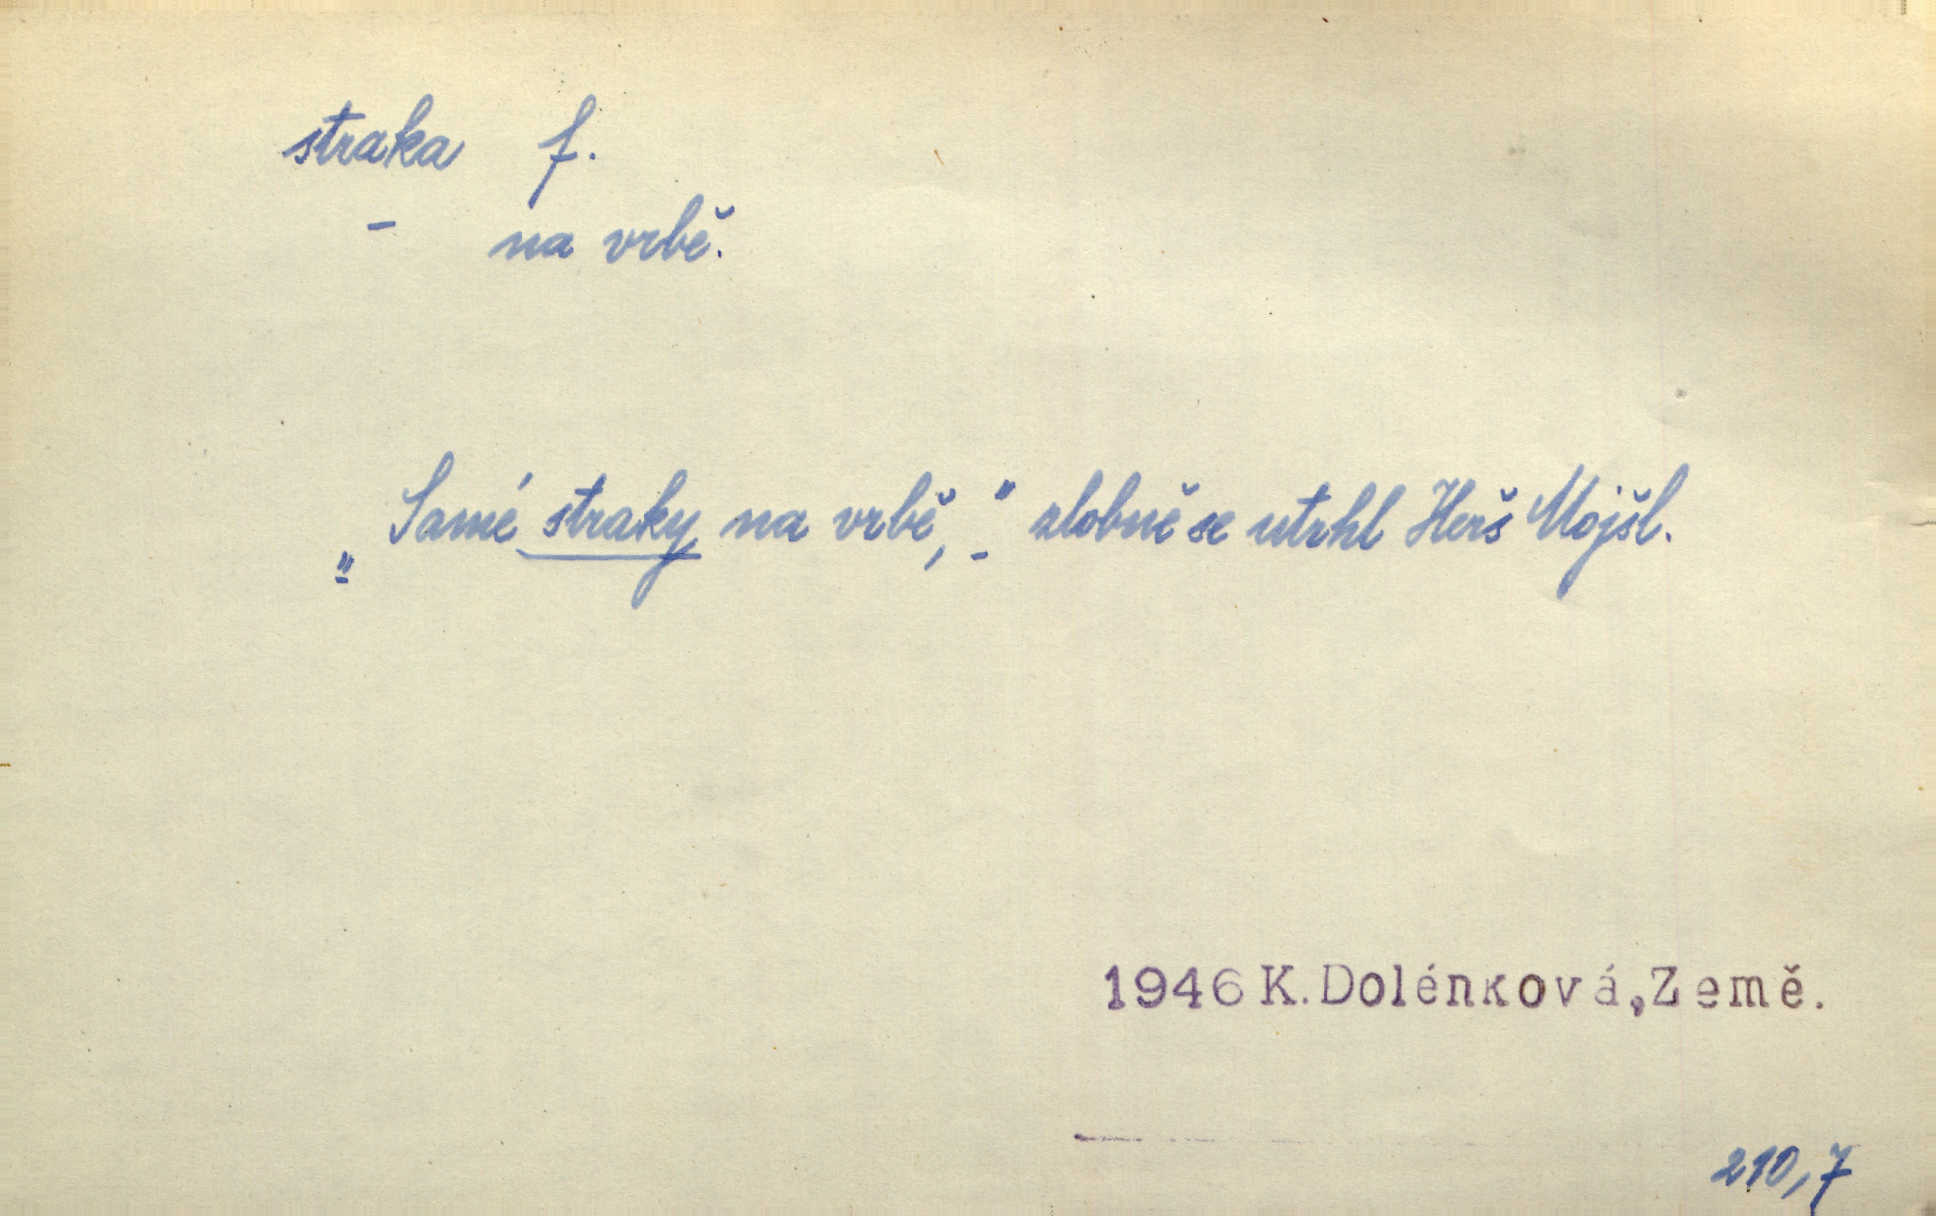 straka f.
– na vrbě.
„Samé straky na vrbě,“ zlobně se utrhl Herš Mojšl.
1946 K. Dolénková, Země.
210,7